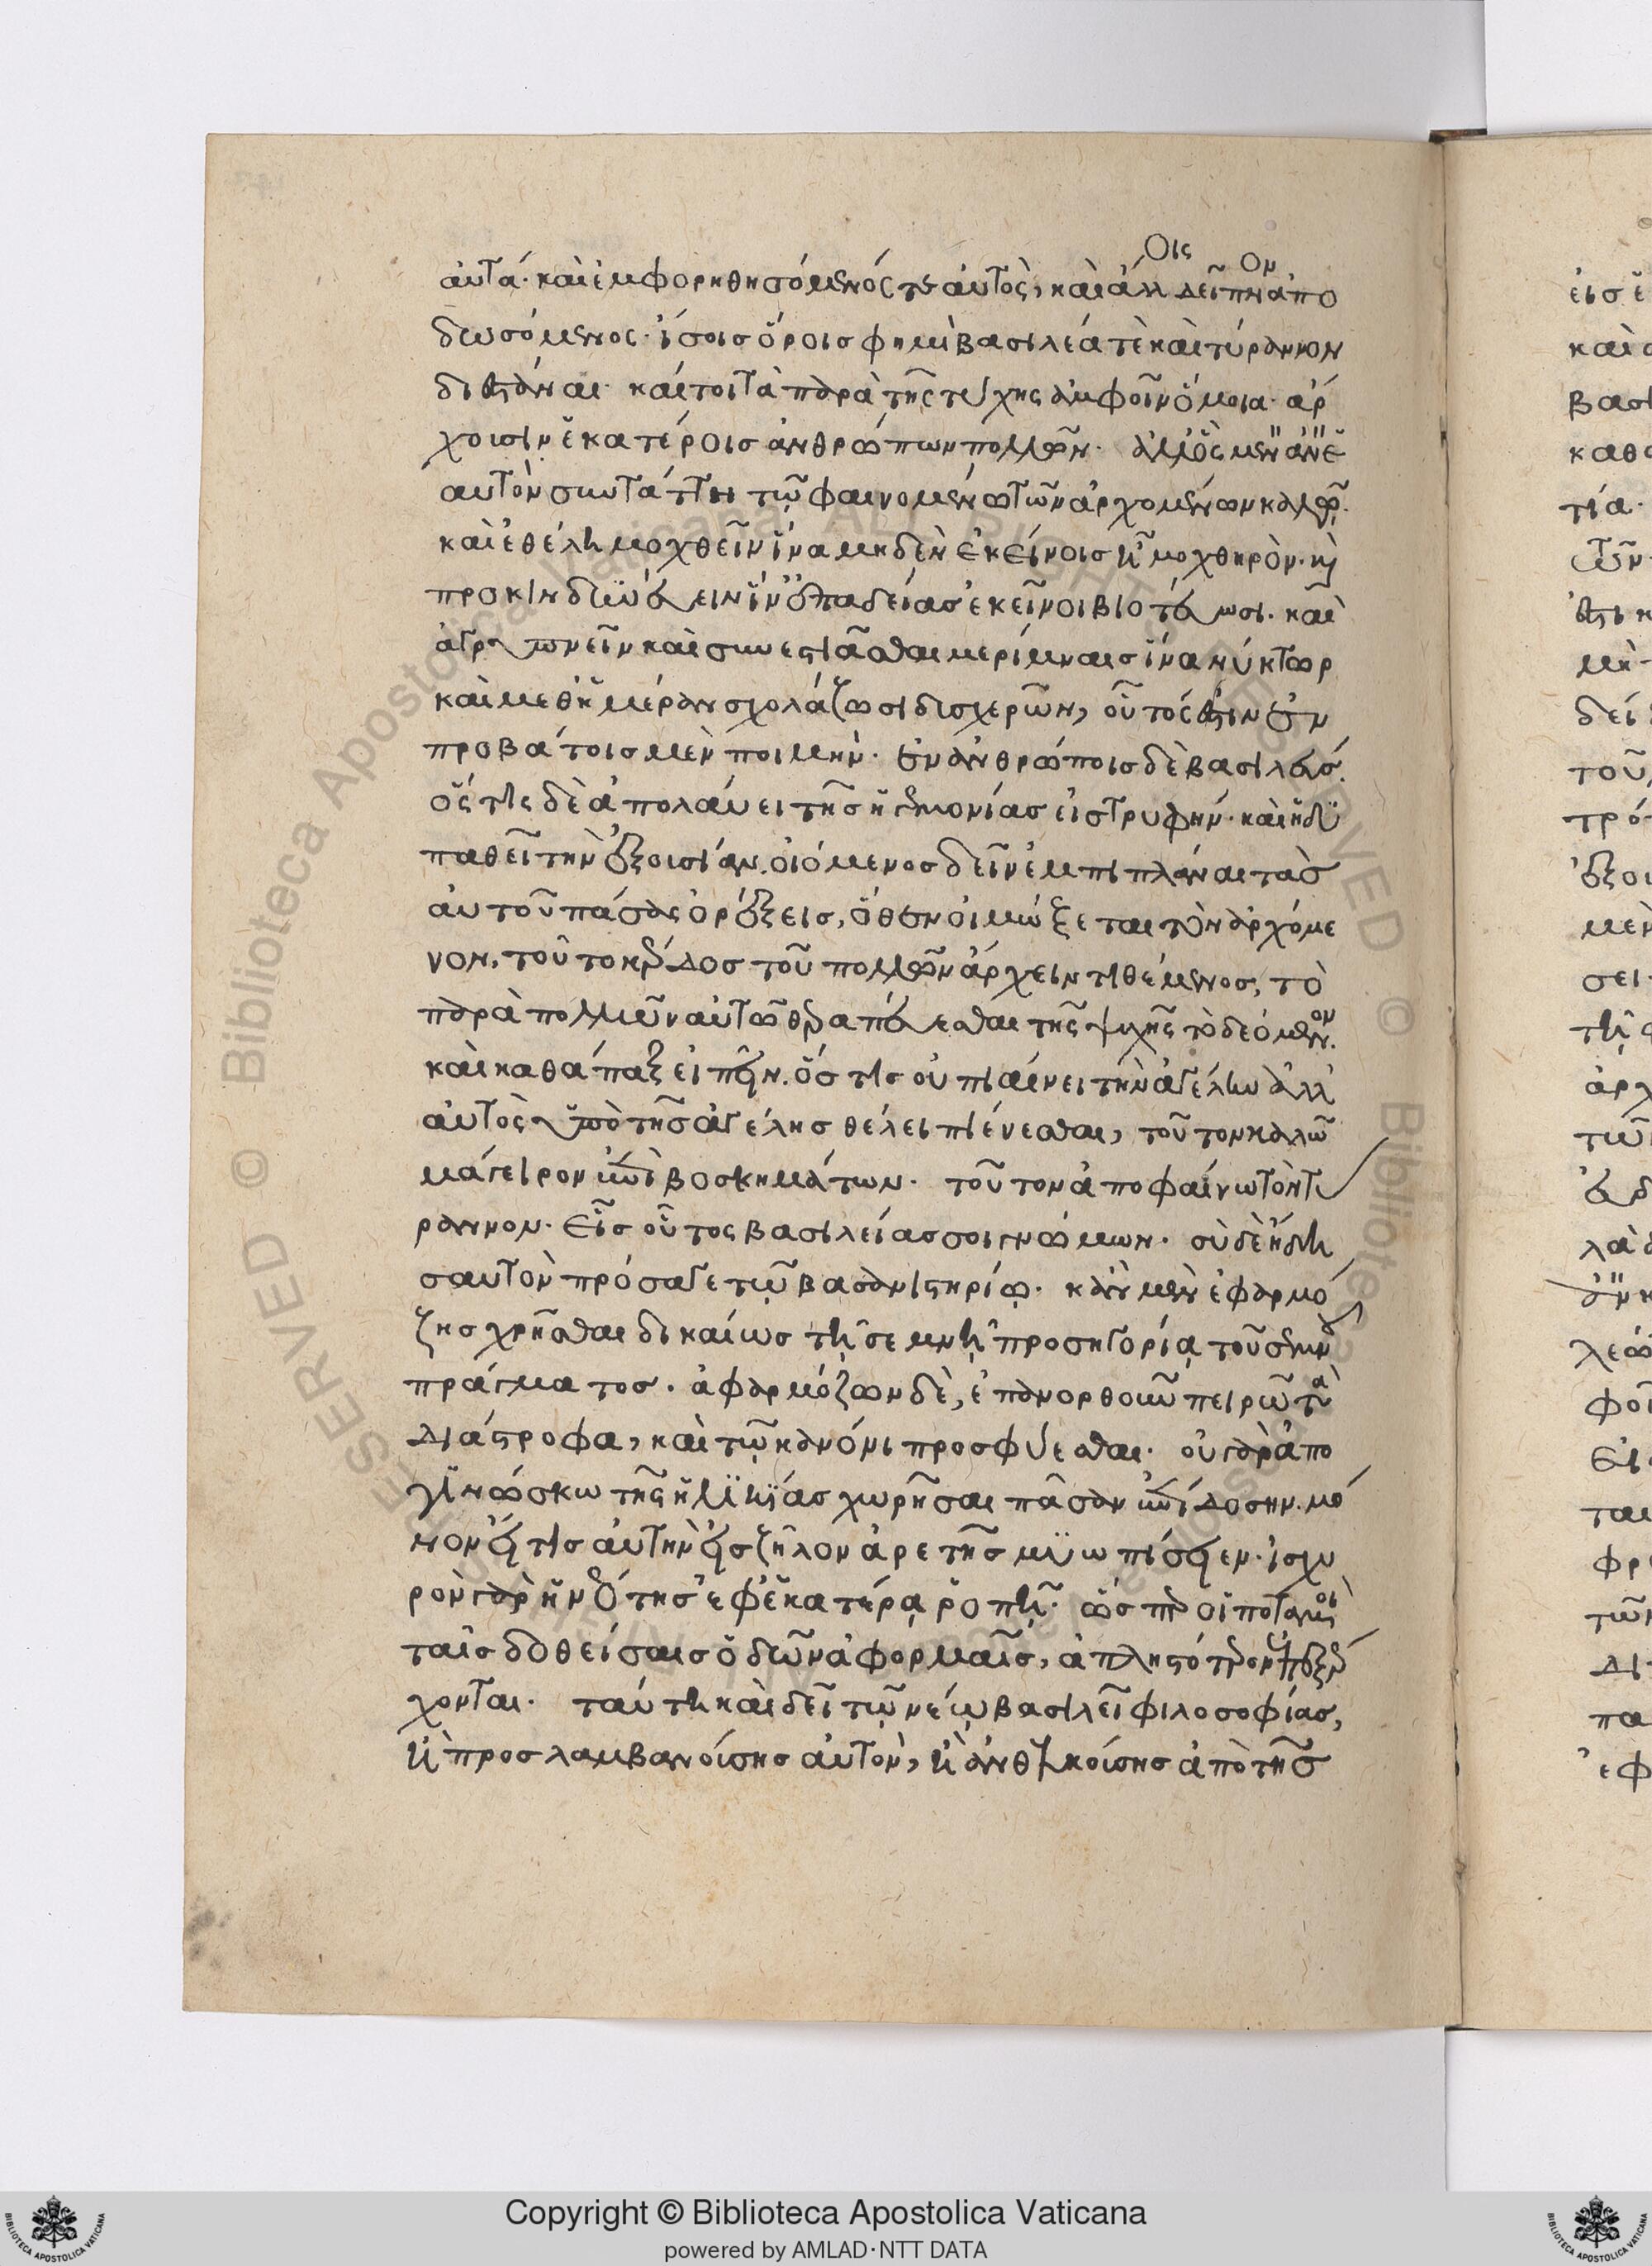 αὐτά· καὶ ἐμφορηθησόμενός τε αὐτὸς, καὶ ἄλλοις δεῖπνον ἀπο
δωσόμενος· ἴσοις ὅροις φημὶ βασιλέα τὲ καὶ τύραννον
διεστάναι· καίτοι τὰ παρὰ τῆς τύχης ἀμφοῖν ὅμοια· ἄρ
χουσιν ἑκατέροις ἀνθρώπων πολλῶν· ἀλλ' ὃς μὲν ἂν ἑ
αυτὸν συντάττῃ τῷ φαινομένῳ τῶν ἀρχομένων καλῷ·
καὶ ἐθέλῃ μοχθεῖν ἵνα μηδὲν ἐκείνοις ᾖ μοχθηρὸν· καὶ
προκινδυνεύειν ἵν' ἐπ' ἀδείας ἐκεῖνοι βιοτεύωσι· καὶ
ἀγρυπνεῖν καὶ συνεστιᾶσθαι μερίμναις ἵνα νύκτωρ
καὶ μεθ' ἡμέραν σχολάζωσι δυσχερῶν, οὗτός ἐστιν ἐν
προβάτοις μὲν ποιμήν· ἐν ἀνθρώποις δὲ βασιλεύς·
ὅς τις δὲ ἀπολαύει τῆς ἡγεμονίας εἰς τρυφήν· καὶ ἡδυ
παθεῖ τὴν ἐξουσίαν, οἰόμενος δεῖν ἐμπιπλάναι τὰς
αὐτοῦ πάσας ὀρέξεις, ὅθεν οἰμώξεται τὸν ἀρχόμε
νον, τοῦτο κέρδος τοῦ πολλῶν ἄρχειν τιθέμενος, τὸ
παρὰ πολλῶν αὐτῷ θεραπεύεσθαι τῆς ψυχῆς τὸ δεόμενον·
καὶ καθάπαξ εἰπεῖν· ὅς τις οὐ πιαίνει τὴν ἀγέλην ἀλλ'
αὐτὸς ὑπὸ τῆς ἀγέλης θέλει πιαίνεσθαι, τοῦτον καλῶ
μάγειρον ἐπὶ βοσκημάτων· τοῦτον ἀποφαίνω τὸν τύ
ραννον· Εἷς οὗτος βασιλείας σοι γνώμων· σὺ δὲ ἤδη
σαυτὸν πρόσαγε τῷ βασανιστηρίῳ· κἂν μὲν ἐφαρμό
ζῃς χρῆσθαι δικαίως τῇ σεμνῇ προσηγορίᾳ τοῦ σεμνοῦ
πράγματος· ἀφαρμόζων δὲ, ἐπανορθοῦν πειρῶ τὰ
διάστροφα, καὶ τῷ κανόνι προσφύεσθαι· οὐ γὰρ ἀπο
γινώσκω τῆς ἡλικίας χωρῆσαι πᾶσαν ἐπίδοσιν· μό
νον εἴ τις αὐτὴν εἰς ζῆλον ἀρετῆς μυωπίσειεν· ἰσχυ
ρὸν γὰρ ἡ νεότης ἐφ' ἑκατέρᾳ ῥοπῇ· ὥσπερ οἱ ποταμοὶ
ταῖς δοθείσαις ὁδῶν ἀφορμαῖς, ἀπληστότερον ἐπεξέρ
χονται· ταύτῃ καὶ δεῖ τῷ νέῳ βασιλεῖ φιλοσοφίας,
καὶ προσλαμβανούσης αὐτὸν, καὶ ἀνθελκούσης ἀπὸ τῆς